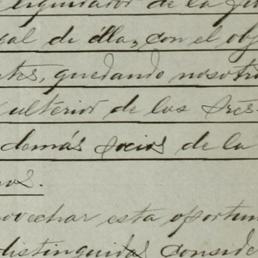 liquidador de la
al de élla, con el obj
tes, quedando nosotro
ulterior de los
demás socios de la
nos.
ovechar esta oportun
distinguida conside